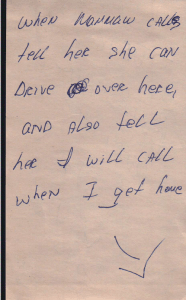 WHEN MAMMAW CALLS
tell her she can
DRIVE over here,
AND ALSO tell
her I will CALL
when I get home